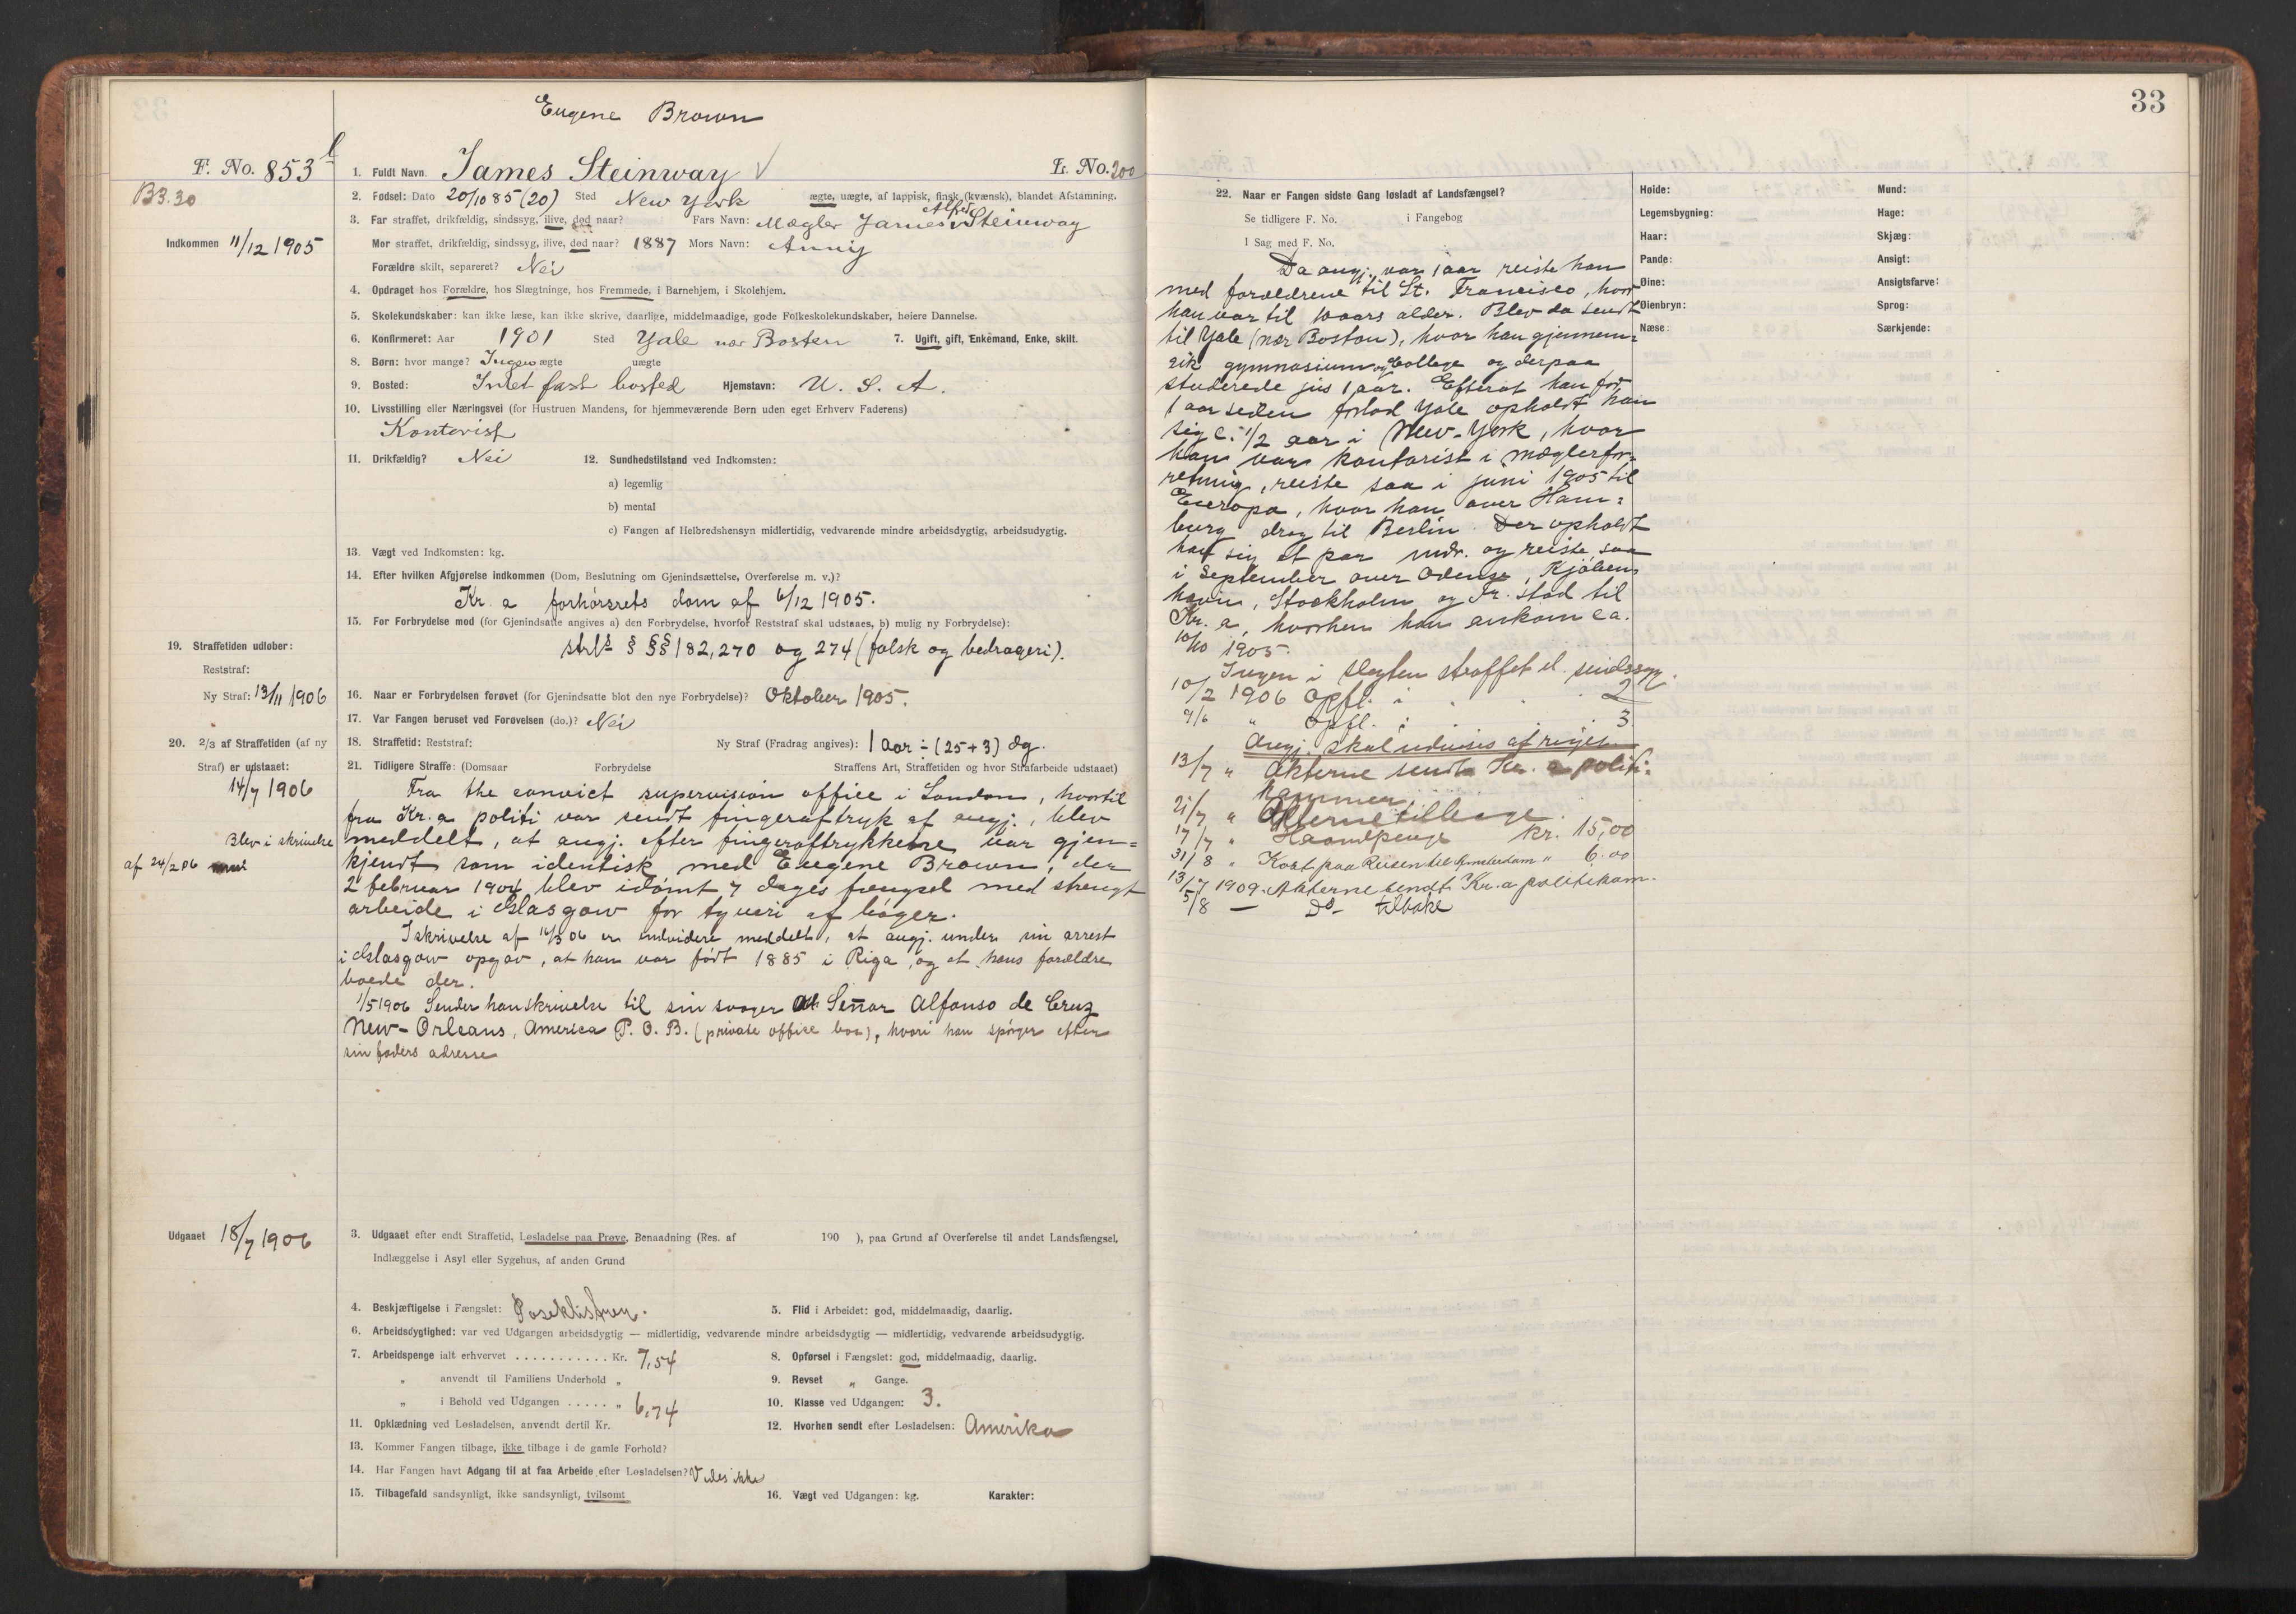 Eugene Brown
F. No. 853 b
1. Fuldt Navn James Steinway
L. No. 200
B3.20
2. Fødsel: Dato 20/10 85 (20) Sted New York ægte, uægte, af lappisk, finsk (kvænsk), blandet Afstamning.
3. Far straffet, drikfældig, sindssyg, ilive, død naar? Fars Navn: Mægler James Alfred Steinway
Indkommen 11/12 1905
Mor straffet, drikfældig, sindssyg, ilive, død naar? 1887 Mors Navn: Anny
Forældre skilt, separeret? Nei
4. Opdraget hos Forældre, hos Slægtninge, hos Fremmede, i Barnehjem, i Skolehjem.
5. Skolekundskaber: kan ikke læse, kan ikke skrive, daarlige, middelmaadige, gode Folkeskolekundskaber, høiere Dannelse.
6. Konfirmeret: Aar 1901 Sted Yale nær Boston 7. Ugift, gift, Enkemand, Enke, skilt.
8. Børn: hvor mange? Ingen ægte uægte
9. Bosted: Intet fast bosted Hjemstavn: U. S. A.
10. Livsstilling eller Næringsvei (for Hustruen Mandens, for hjemmeværende Børn uden eget Erhverv Faderens)
Kontorist
11. Drikfældig? Nei 12. Sundhedstilstand ved Indkomsten:
a) legemlig
b) mental
c) Fangen af Helbredshensyn midlertidig, vedvarende mindre arbeidsdygtig, arbeidsudygtig.
13. Vægt ved Indkomsten: kg.
14. Efter hvilken Afgjørelse indkommen (Dom, Beslutning om Gjenindsættelse, Overførelse m. v.)?
Kr. a forhørsrets dom af 6/12 1905.
15. For Forbrydelse mod (for Gjenindsatte angives a) den Forbrydelse, hvorfor Reststraf skal udstaaes, b) mulig ny Forbrydelse):
19. Straffetiden udløber:
strls § §§ 182, 270 og 274 (falsk og bedrageri).
Reststraf:
Ny Straf: 13/11 1906
16. Naar er Forbrydelsen forøvet (for Gjenindsatte blot den nye Forbrydelse)? Oktober 1905.
17. Var Fangen beruset ved Forøvelsen (do.)? Nei
20. 2/3 af Straffetiden (af ny
18. Straffetid: Reststraf: Ny Straf (Fradrag angives): 1 aar ÷ (25+3) dg.
Straf) er udstaaet:
21. Tidligere Straffe: (Domsaar Forbrydelse Straffens Art, Straffetiden og hvor Strafarbeide udstaaet)
14/7 1906
Fra the convict supervision office i London, hvortil
fra Kr. a politi var sendt fingeraftryk af angj., blev
Blev i skrivelse
meddelt, at angj. efter fingeraftrykkene var gjen=
af 24/2 06
kjendt som identisk med Eugene Brown, der
2 februar 1904 blev idømt 7 dages fængsel med strengt
arbeide i Glasgow for tyveri af bøger.
I skrivelse af 16/3 06 er endvidere meddelt, at angj. under sin arrest
i Glasgow opgav, at han var født 1885 i Riga, og at hans forældre
boede der.
1/5 1906 Sender han skrivelse til sin svoger Señor Alfonso de Cruz
New-Orleans, America P. O. B. (private office box), hvori han spørger efter
sin faders adresse
Udgaaet 18/7 1906
3. Udgaaet efter endt Straffetid, Løsladelse paa Prøve, Benaadning (Res. af 190 ), paa Grund af Overførelse til andet Landsfængsel,
Indlæggelse i Asyl eller Sygehus, af anden Grund
4. Beskjæftigelse i Fængslet: Poseklistren. 5. Flid i Arbeidet: god, middelmaadig, daarlig.
6. Arbeidsdygtighed: var ved Udgangen arbeidsdygtig — midlertidig, vedvarende mindre arbeidsdygtig — midlertidig, vedvarende arbeidsudygtig.
7. Arbeidspenge ialt erhvervet ........... Kr. 7,54 8. Opførsel i Fængslet: god, middelmaadig, daarlig.
„ anvendt til Familiens Underhold „ 9. Revset „ Gange.
„ i Behold ved Udgangen ..... „ 6,74 10. Klasse ved Udgangen: 3.
11. Opklædning ved Løsladelsen, anvendt dertil Kr. 12. Hvorhen sendt efter Løsladelsen: Amerika
13. Kommer Fangen tilbage, ikke tilbage i de gamle Forhold?
14. Har Fangen havt Adgang til at faa Arbeide efter Løsladelsen? Vides ikke
15. Tilbagefald sandsynligt, ikke sandsynligt, tvilsomt 16. Vægt ved Udgangen: kg. Karakter:
33
22. Naar er Fangen sidste Gang løsladt af Landsfængsel?
Se tidligere F. No. i Fangebog
I Sag med F. No.
Da angj. var 1 aar reiste han
med forældrene til St. Francisco, hvor
han var til 10 aars alder. Blev da sendt
til Yale (nær Boston), hvor han gjennem=
gik gymnasium og College og derpaa
studerede jus 1 aar. Efterat han for
1 aar siden forlod Yale opholdt han
sig c. 1/2 aar i New-York, hvor
han var kontorist i mæglerfor=
retning, reiste saa i juni 1905 til
Europa, hvor han over Ham=
burg drog til Berlin. Der opholdt
han sig et par mdr. og reiste saa
i September over Odense, Kjøben=
havn, Stockholm og Kr. stad til
Kr. a, hvorhen han ankom ca.
10/10 1905.
Ingen i slegten straffet el. sindssyg.
10/2 1906 Opfl. i 2
9/6 " Opfl. i 3
Angj. skal udvises af riget
13/7 " Akterne sendt Kr. a politi=
kammer.
21/7 " Akterne tilbage.
17/7 " Haandpenge kr. 15,00
31/8 " Kost paa Reisen til Amsterdam " 6.00
13/7 1909. Akterne sendt Kr. a politikam.
5/8 — Do — tilbake
Høide:
Legemsbygning:
Haar:
Pande:
Øine:
Øienbryn:
Næse:
Mund:
Hage:
Skjæg:
Ansigt:
Ansigtsfarve:
Sprog:
Særkjende: